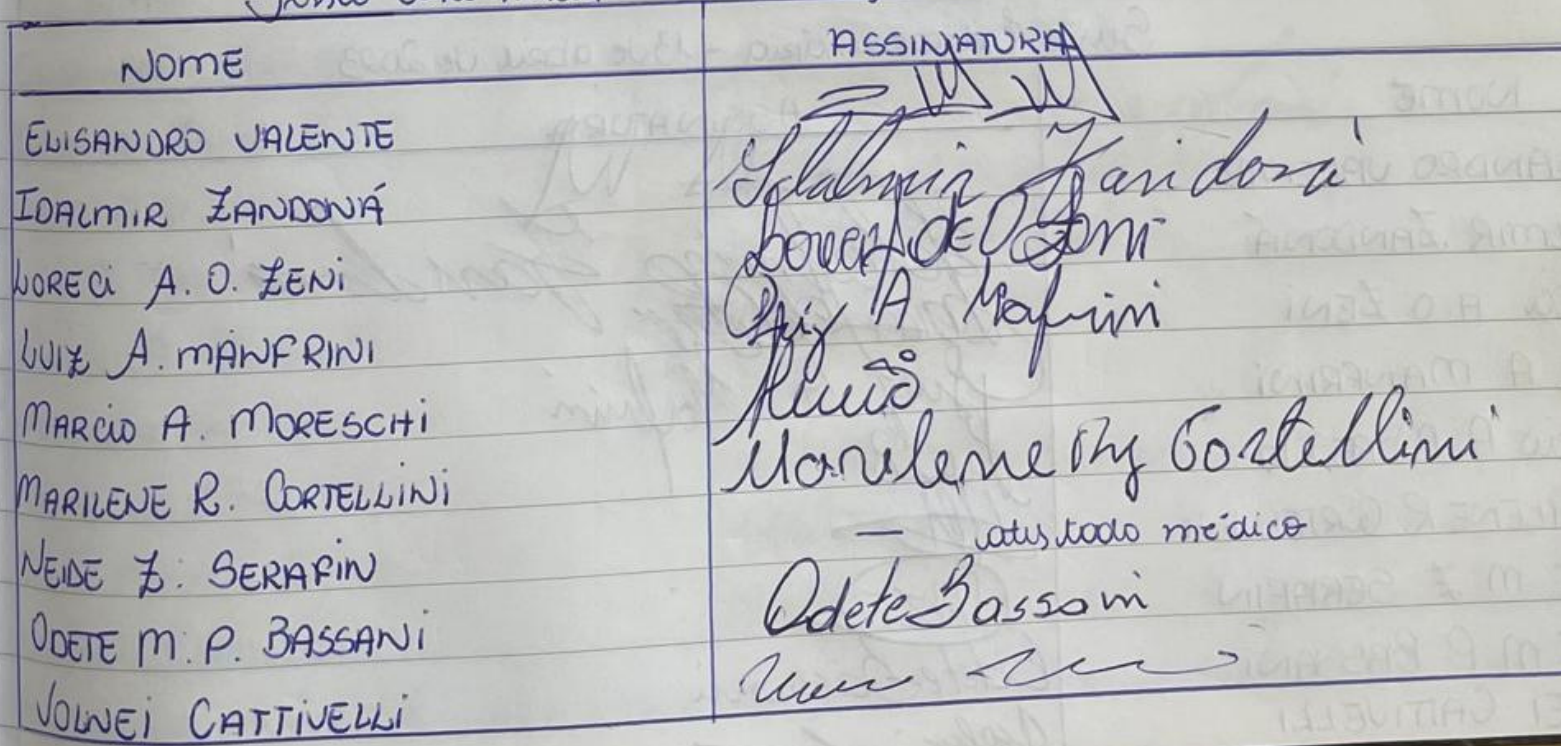 NOME ASSINATURA
ELISANDRO VALENTE
IDALMIR ZANDONÁ Idalmir Zandoná
LORECI A. O. ZENI Loreci A de O Zeni
LUIZ A. MANFRINI Luiz A Mafrini
MARCIO A. MORESCHI
MARILENE R. CORTELLINI Marilene Cortellini
NEIDE Z. SERAFIN — atestado médico
ODETE M. P. BASSANI Odete Bassani
VOLNEI CATTIVELLI